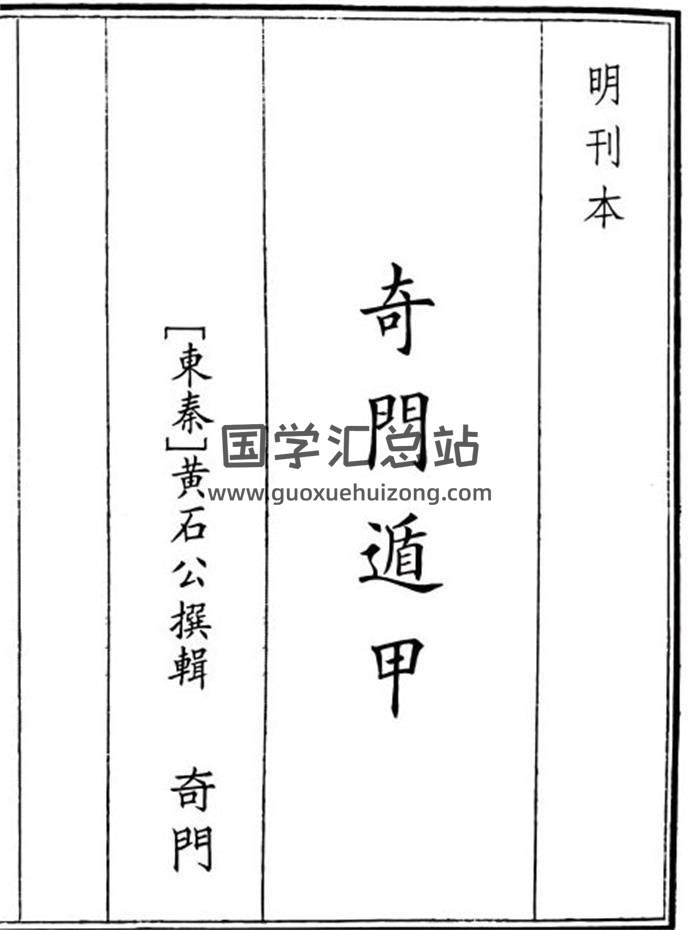 明刊本
奇門遁甲
[東秦]黄石公撰輯 奇門
国学汇总站
www.guoxuehuizong.com